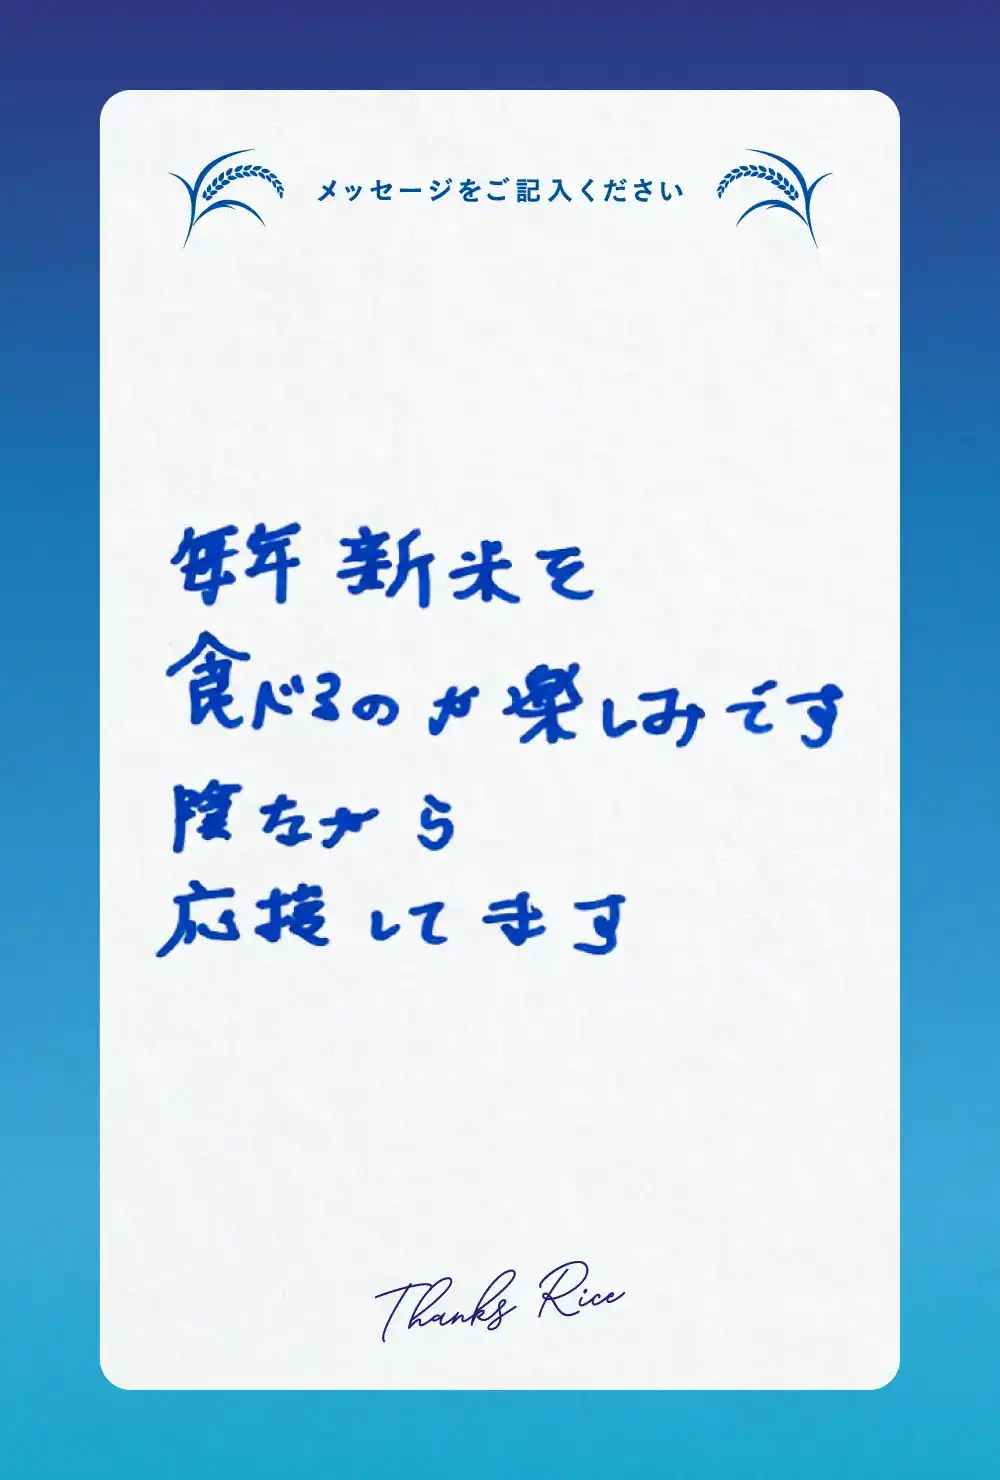 メッセージをご記入ください
毎年 新米を
食べるのが楽しみです
陰ながら
応援してます
Thanks Rice